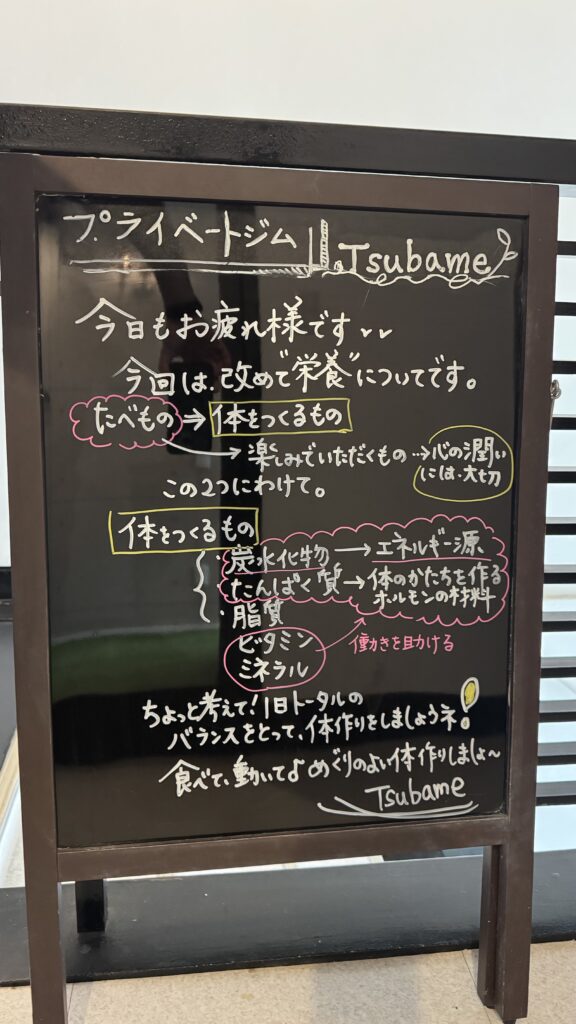 プライベートジム Tsubame
今日もお疲れ様です
今回は、改めて"栄養"についてです。
たべもの → 体をつくるもの
→ 楽しみでいただくもの → 心の潤い
には、大切
この2つにわけて。
体をつくるもの
・炭水化物 → エネルギー源
・たんぱく質 → 体のかたちを作る
ホルモンの材料
・脂質
ビタミン
ミネラル
働きを助ける
ちょっと考えて!1日トータルの
バランスをとって、体作りをしましょうネ!
食べて、動いて♪めぐりのよい体作りしましょ〜
Tsubame